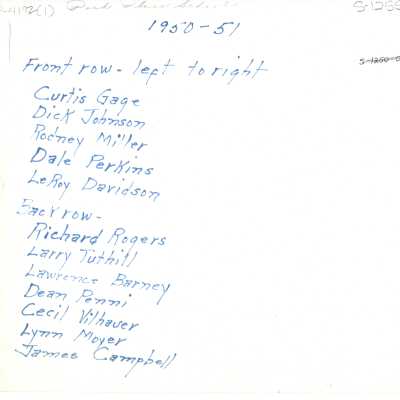 1950-51
Front row - left to right
Curtis Gage
Dick Johnson
Rodney Miller
Dale Perkins
LeRoy Davidson
Back row -
Richard Rogers
Larry Tuthill
Lawrence Barney
Dean Penni
Cecil Vilhauer
Lynn Moyer
James Campbell